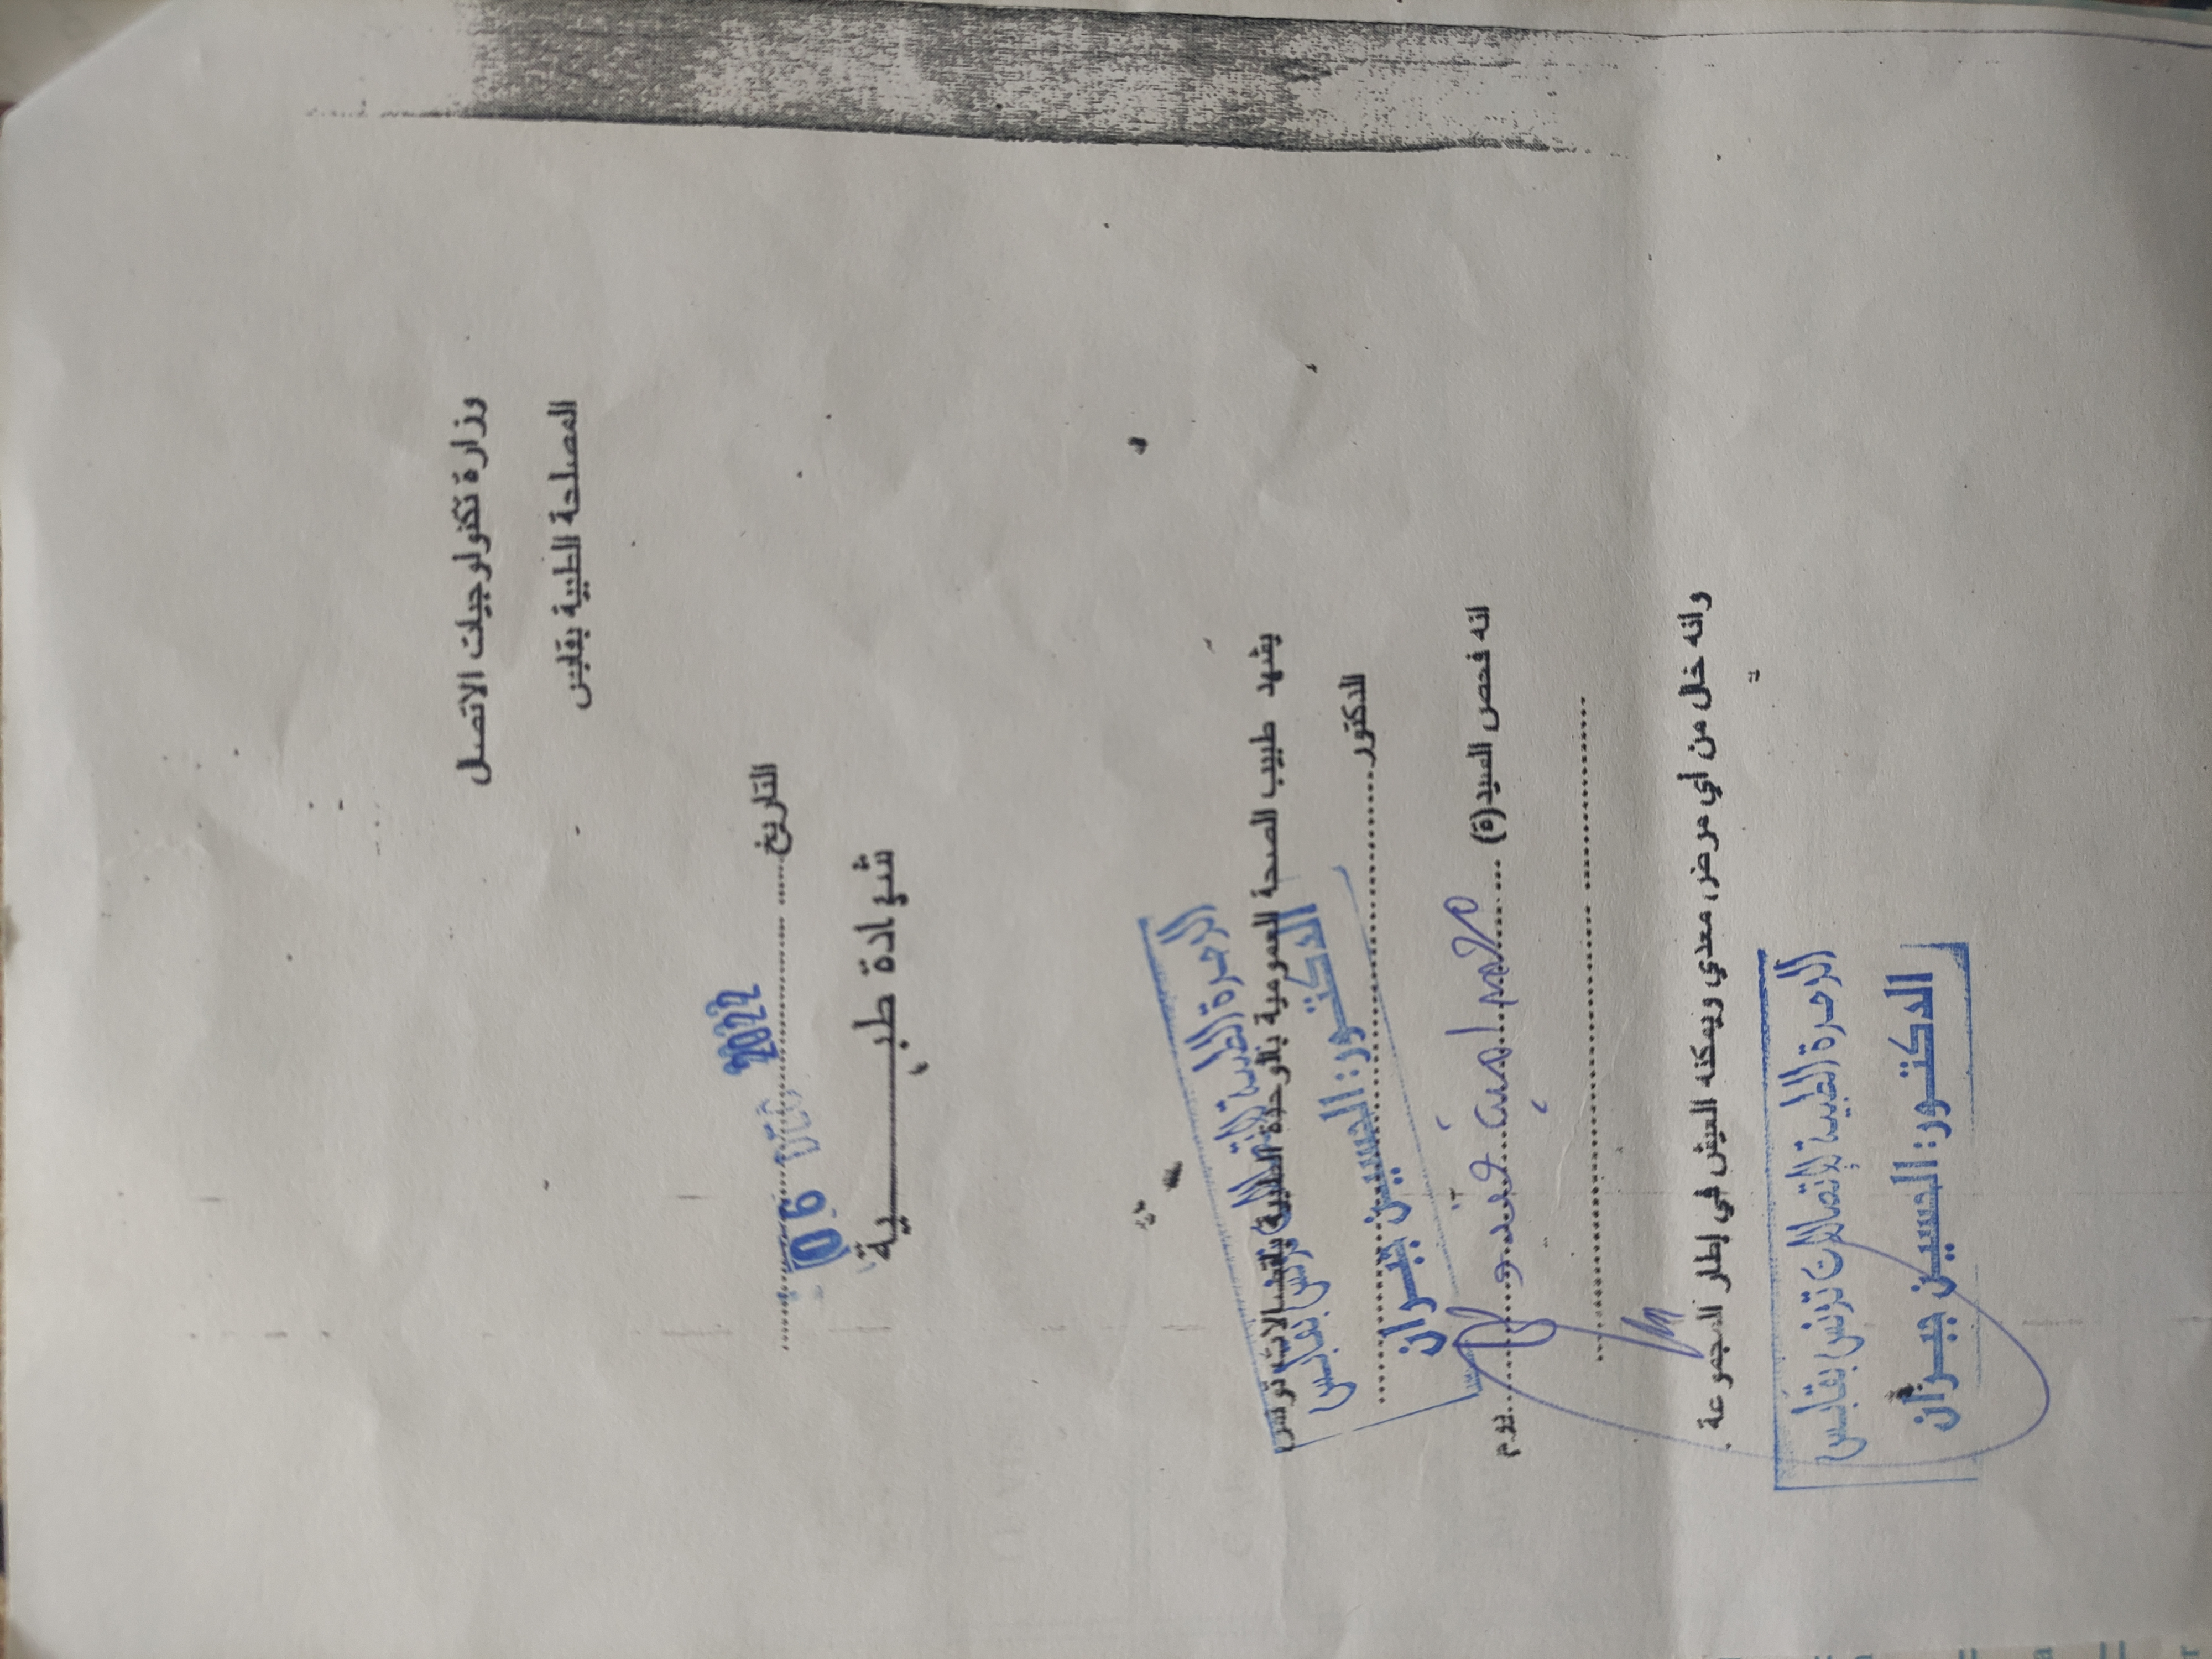 وزارة تكنولوجيات الاتصال
المصلحة الطبية بقابس
التاريخ ........ 06 ... 2022
شهادة طبـــــــــية
يشهد طبيب الصحة العمومية بالوحدة الطبية بإتصالات تونس
الوحدة الطبية لإتصالات تونس بقابس
الدكتور ........
الدكتــور: الحسيــن جبــران
انه فحص السيد(ة) .... محمد امين ........ يوم
وانه خال من أي مرض معدي ويمكنه العيش في إطار المجموعة .
الوحدة الطبية لإتصالات تونس بقابس
الدكتــور: الحسيــن جبــران